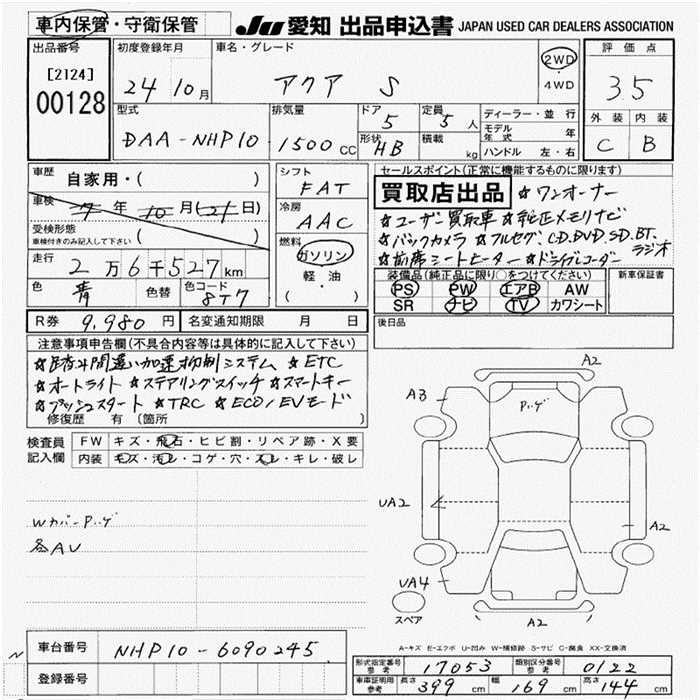 車内保管・守衛保管
JU 愛知 出品申込書 JAPAN USED CAR DEALERS ASSOCIATION
出品番号
[2124]
00128
初度登録年月
24年10月
車名・グレード
アクア S
2WD
・
4WD
評価点
3.5
外装 内装
C B
型式
DAA-NHP10
排気量
1500 CC
ドア
5
形状
HB
定員
5人
積載
kg
ディーラー・並行
モデル年式 年
ハンドル 左・右
車歴 自家用・( )
車検 年10月(21日)
受検形態
車検付きのみ記入して下さい ( )
走行 2万6千527km
色 青 色替 色コード 8T7
シフト
FAT
冷房
AAC
燃料
ガソリン
・
軽・油
( )
セールスポイント(正常に機能するものに限ります)
買取店出品 ☆ワンオーナー
☆ユーザー買取車 ☆純正メモリナビ
☆バックカメラ ☆フルセグ、CD.DVD.SD.BT.ラジオ
☆前席シートヒーター ☆ドライブレコーダー
装備品(純正品に限り○をつけてください)
PS PW エアB AW
SR ナビ TV カワシート
新車保証書
後日品
R券 9,980円 名変通知期限 月 日
注意事項申告欄(不具合内容等は具体的に記入して下さい)
☆踏み間違い加速抑制システム ☆ETC
☆オートライト ☆ステアリングスイッチ ☆スマートキー
☆プッシュスタート ☆TRC ☆ECO/EVモード
修復歴 有 〔箇所 〕
検査員記入欄
FW キズ・飛石・ヒビ割・リペア跡・X要
内装 キズ・汚レ・コゲ・穴・スレ・キレ・破レ
Wカバー Pハゲ
各AU
A2
A3
Pハゲ
UA2
A2
UA4
スペア
A2
A-キズ E-エクボ U-凹み W-補修跡 S-サビ C-腐食 XX-交換済
車台番号 NHP10-6090245
登録番号
形式指定番号 参考 17053 類別区分番号 参考 0122
車庫証明用 参考 長さ 399cm 幅 169cm 高さ 144cm